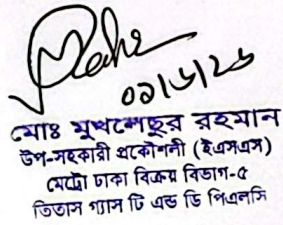 ০৯/৬/২৬
মোঃ মুখলেছুর রহমান
উপ-সহকারী প্রকৌশলী (ইএসএস)
মেট্রো ঢাকা বিক্রয় বিভাগ-৫
তিতাস গ্যাস টি এন্ড ডি পিএলসি